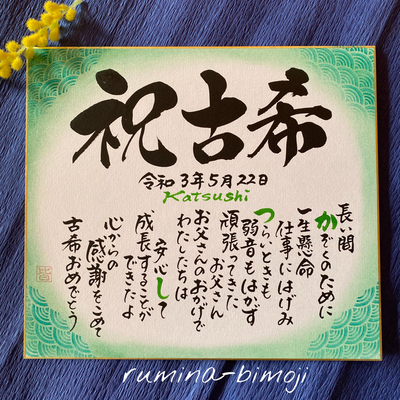 祝古希
令和3年5月22日
Katsushi
長い間
かぞくのために
一生懸命
仕事にはげみ
つらいときも
弱音もはかず
頑張ってきた
お父さん
お父さんのおかげで
わたしたちは
安心して
成長することが
できたよ
心からの
感謝をこめて
古希おめでとう
rumina-bimoji